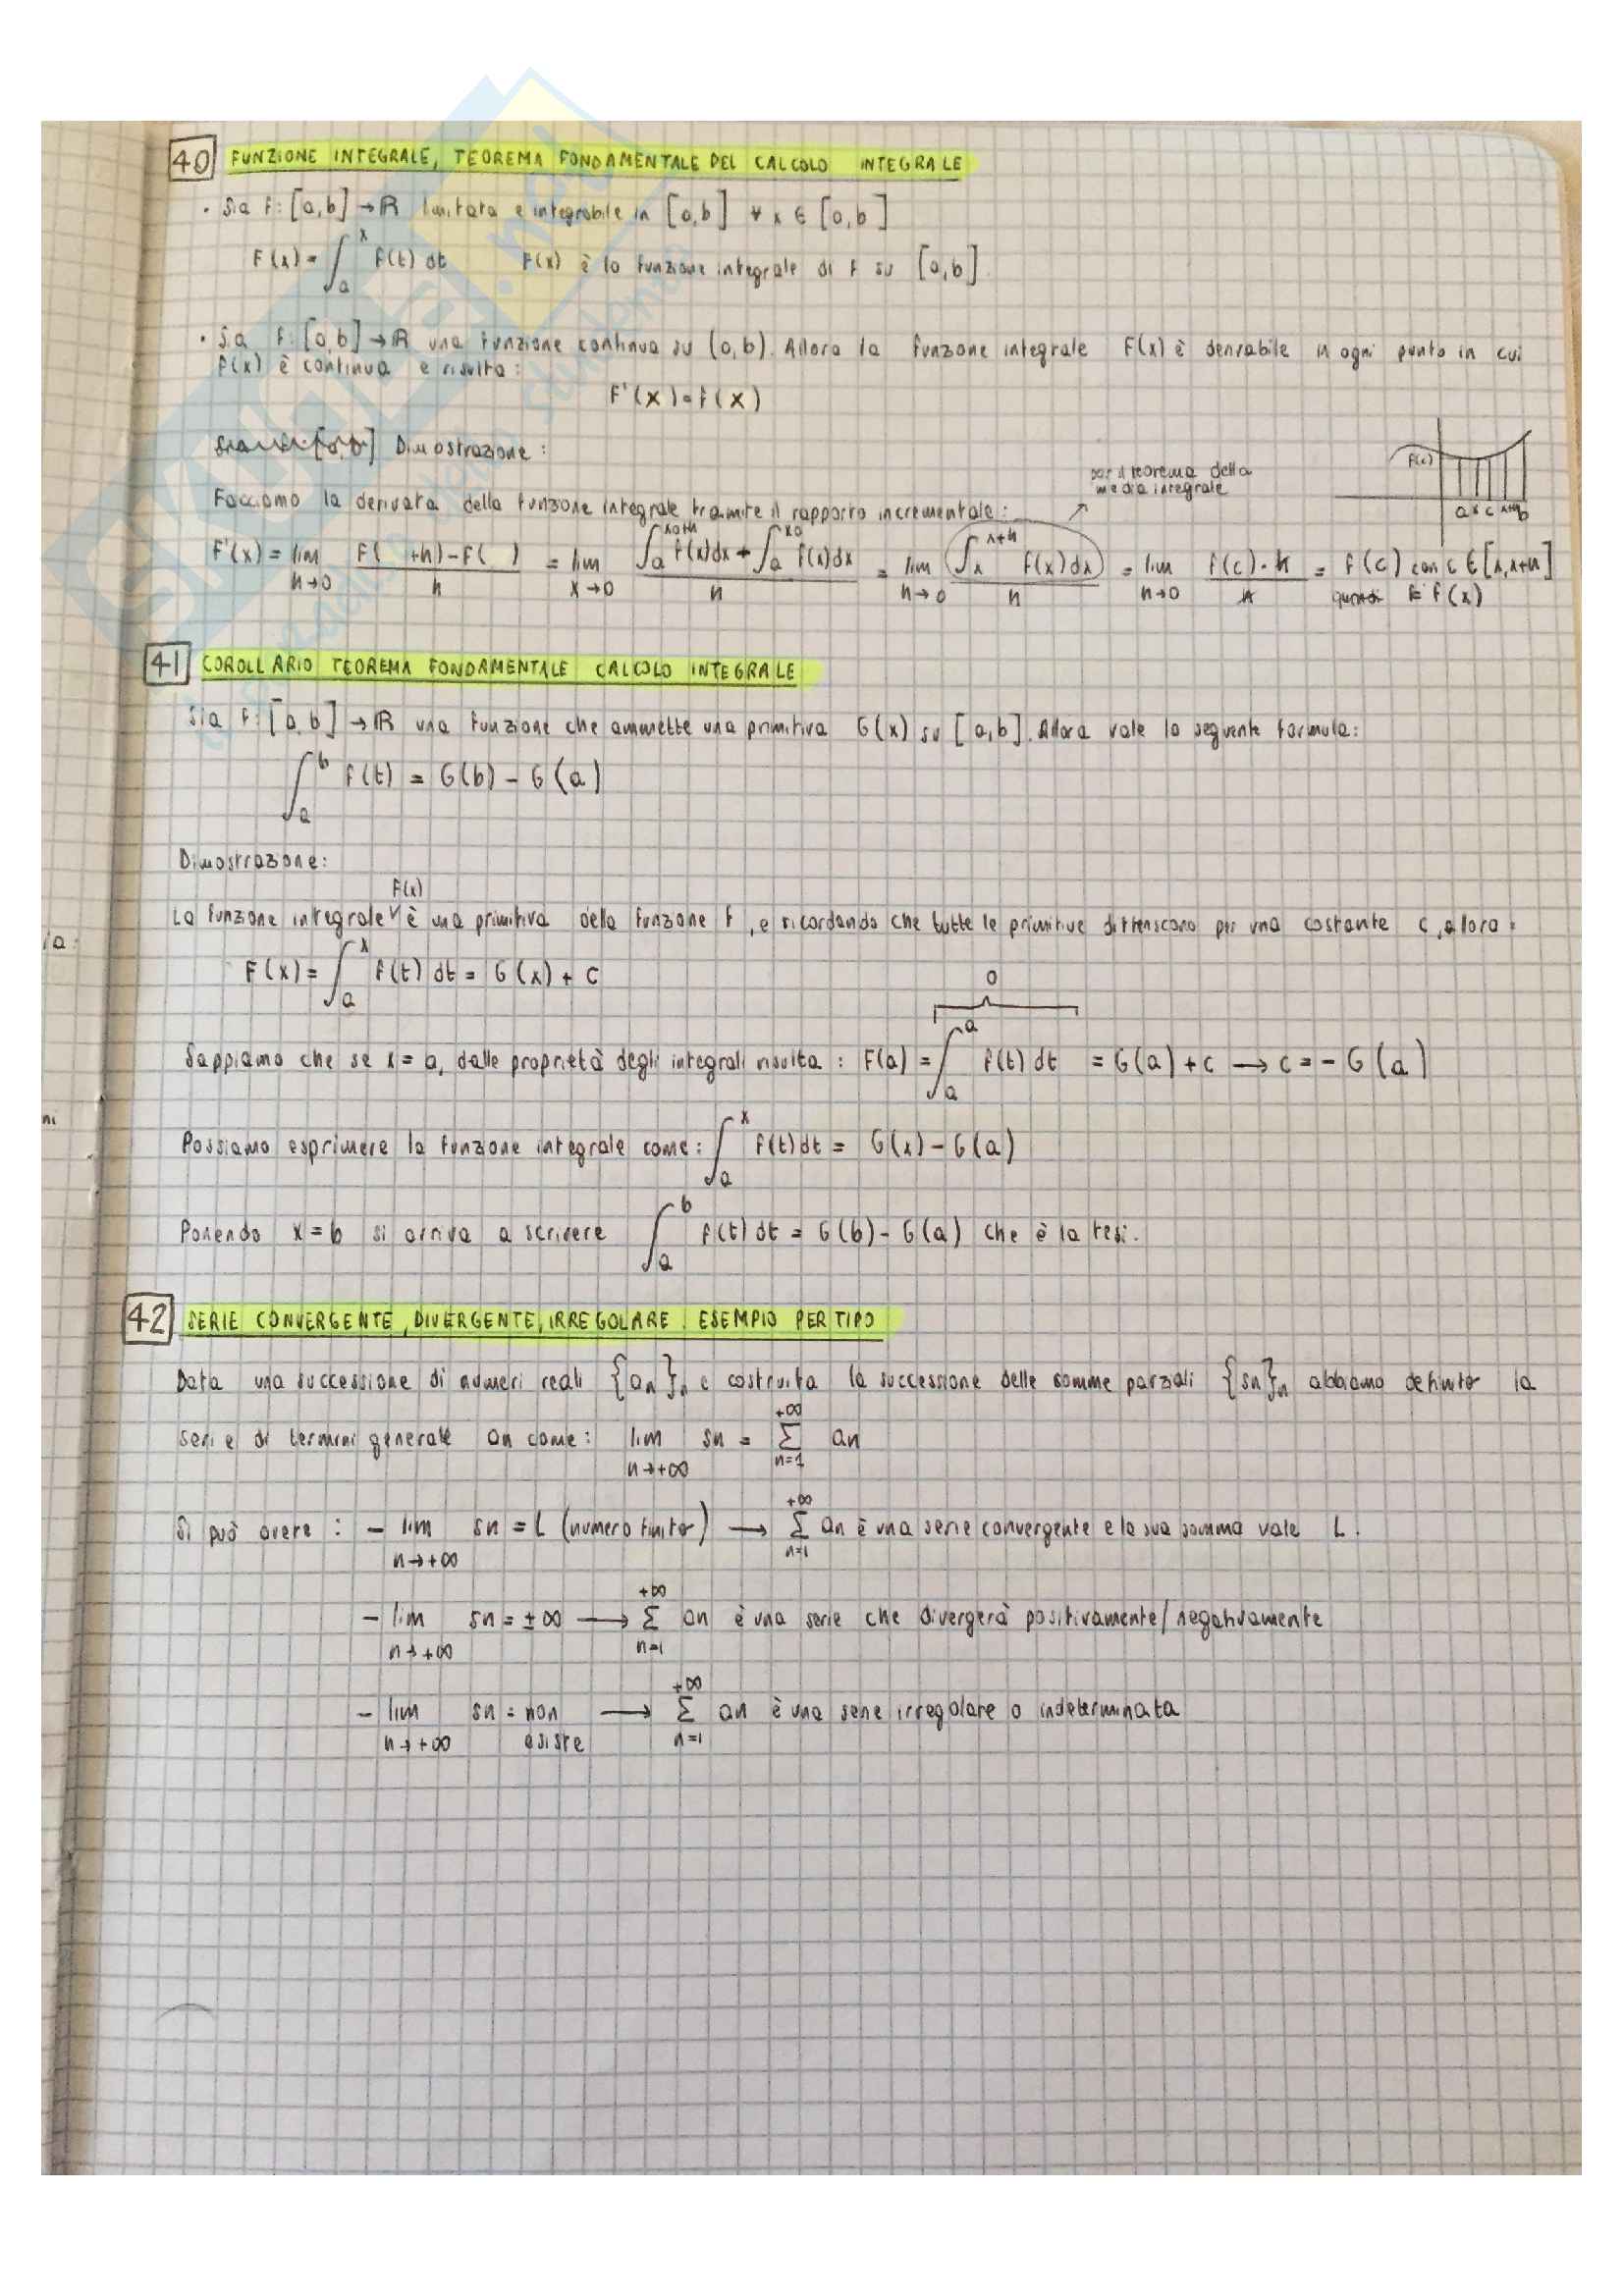 40 FUNZIONE INTEGRALE, TEOREMA FONDAMENTALE DEL CALCOLO INTEGRALE
• Sia f: [a,b] → ℝ limitata e integrabile in [a,b] ∀ x ∈ [a,b]
F(x) = ∫_a^x f(t) dt F(x) è la funzione integrale di f su [a,b]
• Sia f: [a,b] → ℝ una funzione continua su (a,b). Allora la funzione integrale F(x) è derivabile in ogni punto in cui
f(x) è continua e risulta:
F'(x) = f(x)
Dimostrazione:
per il teorema della
media integrale
Facciamo la derivata della funzione integrale tramite il rapporto incrementale:
f(c)
a x c x+h b
F'(x) = lim_{h→0} (F( +h) - F( ))/h = lim_{x→0} (∫_a^{x0+h} f(x)dx + ∫_a^{x0} f(x)dx)/h = lim_{h→0} (∫_x^{x+h} f(x)dx)/h = lim_{h→0} (f(c)·h)/h = f(c) con c ∈ [x,x+h]
quindi F' f(x)
41 COROLLARIO TEOREMA FONDAMENTALE CALCOLO INTEGRALE
Sia f: [a,b] → ℝ una funzione che ammette una primitiva G(x) su [a,b]. Allora vale la seguente formula:
∫_a^b f(t) = G(b) - G(a)
Dimostrazione:
F(x)
La funzione integrale è una primitiva della funzione f, e ricordando che tutte le primitive differiscono per una costante c, allora:
F(x) = ∫_a^x f(t) dt = G(x) + c
0
Sappiamo che se x = a, dalle proprietà degli integrali risulta: F(a) = ∫_a^a f(t) dt = G(a) + c → c = - G(a)
Possiamo esprimere la funzione integrale come: ∫_a^x f(t)dt = G(x) - G(a)
Ponendo x = b si arriva a scrivere ∫_a^b f(t) dt = G(b) - G(a) che è la tesi.
42 SERIE CONVERGENTE, DIVERGENTE, IRREGOLARE. ESEMPIO PER TIPO
Data una successione di numeri reali {an}n e costruita la successione delle somme parziali {sn}n abbiamo definito la
serie di termini generale an come: lim_{n→+∞} sn = Σ_{n=1}^{+∞} an
Si può avere: - lim_{n→+∞} sn = L (numero finito) → Σ_{n=1}^{+∞} an è una serie convergente e la sua somma vale L.
- lim_{n→+∞} sn = ±∞ → Σ_{n=1}^{+∞} an è una serie che divergerà positivamente/negativamente
- lim_{n→+∞} sn = non esiste → Σ_{n=1}^{+∞} an è una serie irregolare o indeterminata